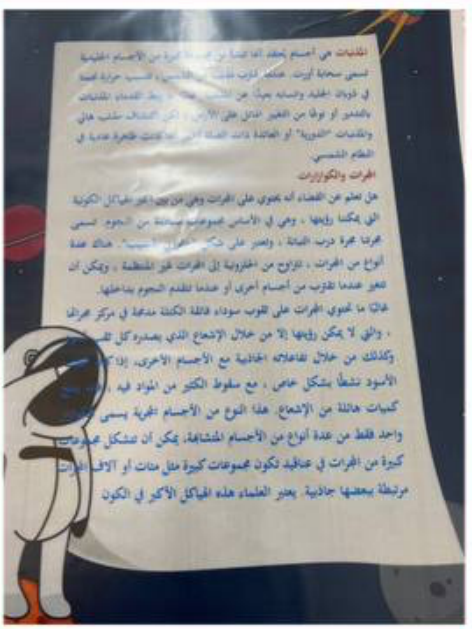 المذنبات هي أجسام يُعتقد أنها تنشأ من مجموعة كبيرة من الأجسام الجليدية
تسمى سحابة أورت. عندما تقترب من الشمس، تتسبب حرارة نجمنا
في ذوبان الجليد وانسيابه بعيدًا عن القدماء المذنبات
بالتدمير أو نوعًا من التغيير الهائل على الأرض، ولكن اكتشاف مذنب هالي
والمذنبات "الدورية" أو العائدة ذات الصلة ظاهرة عادية في
النظام الشمسي.
المجرات والكوازارات
هل تعلم عن الفضاء أنه يحتوي على المجرات وهي من بين أكبر الهياكل الكونية
التي يمكننا رؤيتها ، وهي في الأساس مجموعات من النجوم. تسمى
مجرتنا مجرة درب التبانة ، وتعتبر على شكل هناك عدة
أنواع من المجرات ، تتراوح من الحلزونية إلى المجرات غير المنتظمة ، ويمكن أن
تتغير عندما تقترب من أجسام أخرى أو عندما تتقدم النجوم بداخلها.
غالبًا ما تحتوي المجرات على ثقوب سوداء فائقة الكتلة مدمجة في مركز مجراتها
، والتي لا يمكن رؤيتها إلا من خلال الإشعاع الذي يصدره كل ثقب
وكذلك من خلال تفاعلاته الجاذبية مع الأجسام الأخرى. إذا
الأسود نشطًا بشكل خاص ، مع سقوط الكثير من المواد فيه ،
كميات هائلة من الإشعاع. هذا النوع من الأجسام المجرية يسمى
واحد فقط من عدة أنواع من الأجسام المتشابهة. يمكن أن تتشكل مجموعات
كبيرة من المجرات في عناقيد تكون مجموعات كبيرة مثل مئات أو آلاف المجرات
مرتبطة ببعضها جاذبية. يعتبر العلماء هذه الهياكل الأكبر في الكون